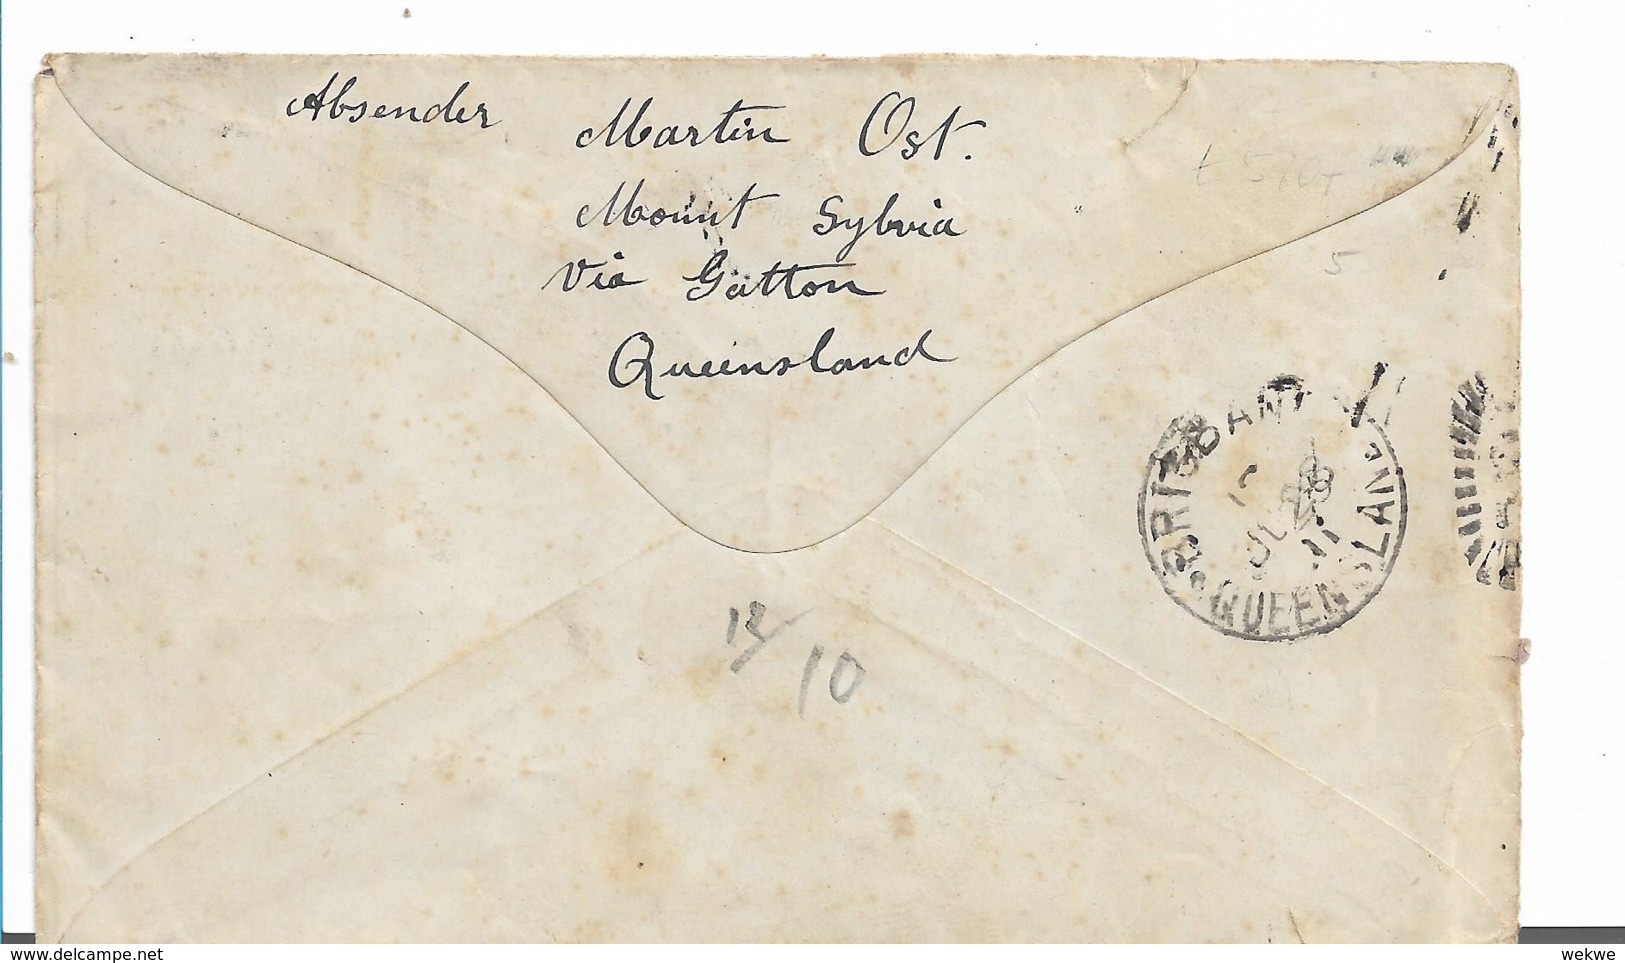 Absender Martin Ost.
Mount Sylvia
via Gatton
Queensland
5
BRISBANE
11
QUEENSLAND
12/10
© Delcampe
wekwe